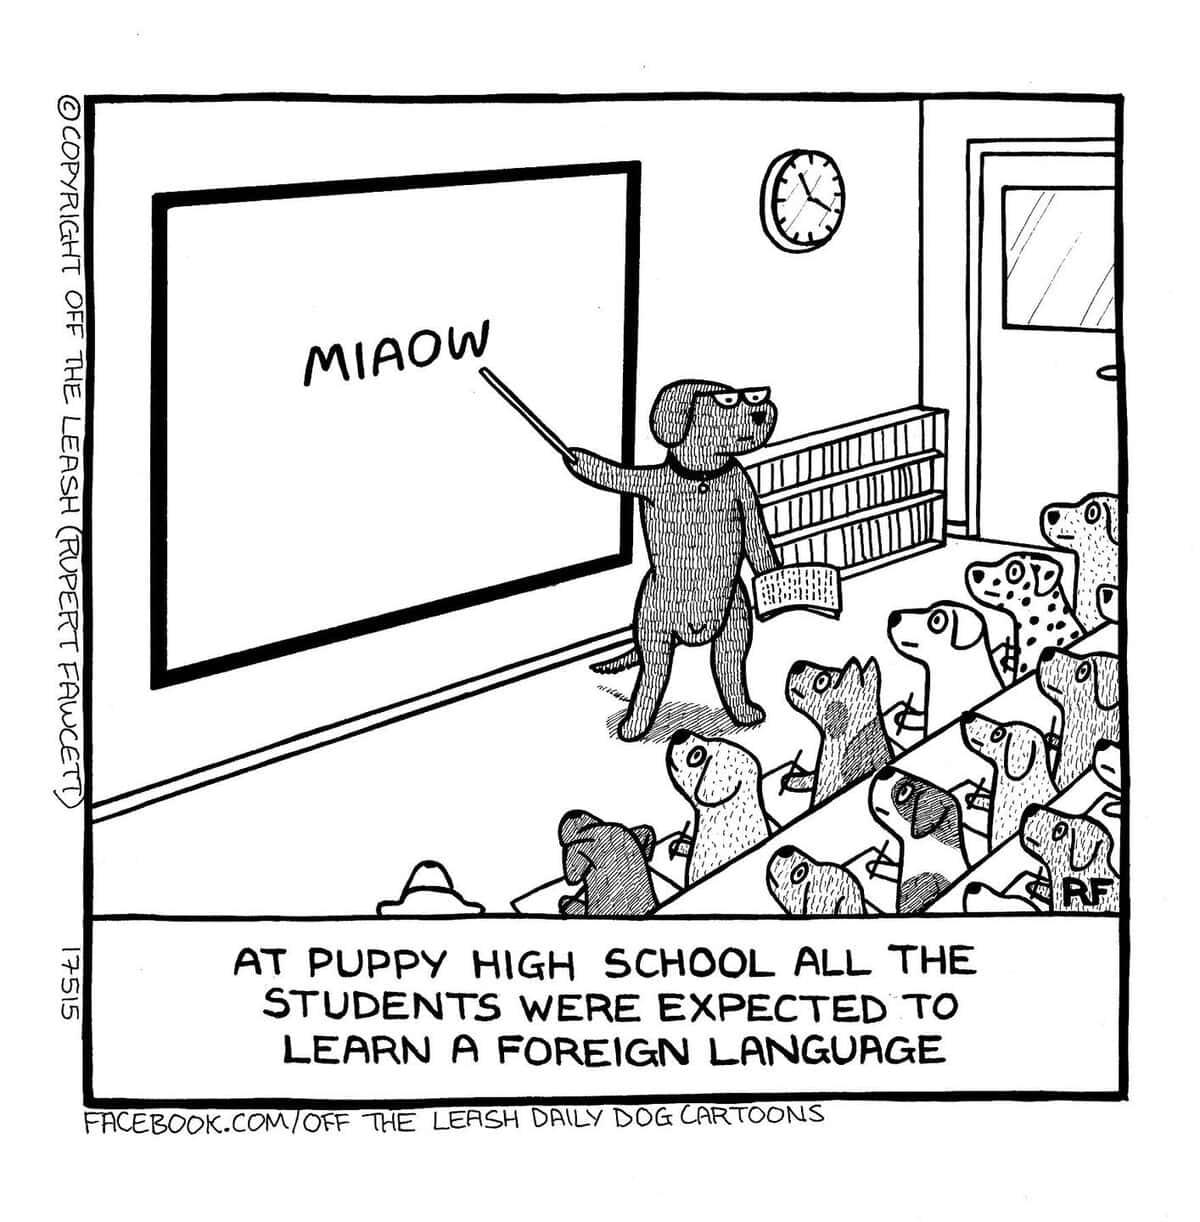 MIAOW
RF
AT PUPPY HIGH SCHOOL ALL THE
STUDENTS WERE EXPECTED TO
LEARN A FOREIGN LANGUAGE
FACEBOOK.COM/OFF THE LEASH DAILY DOG CARTOONS
© COPYRIGHT OFF THE LEASH (RUPERT FAWCETT)
17515